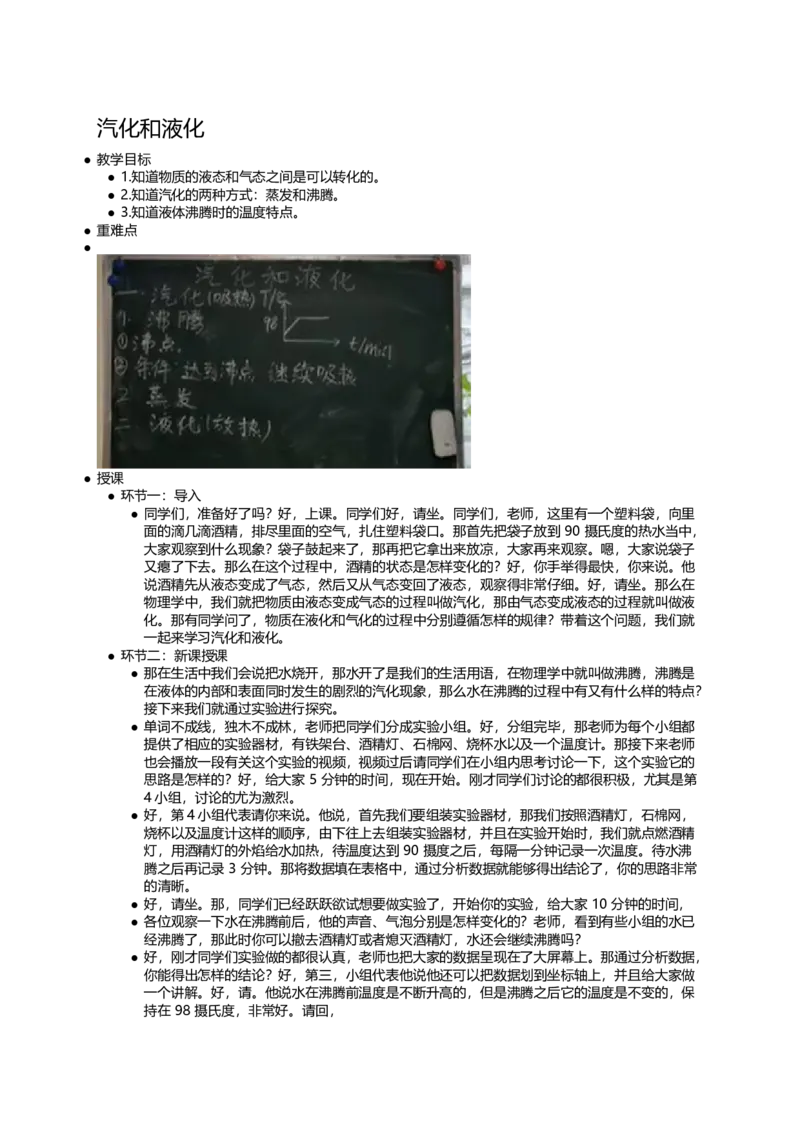 汽化和液化
● 教学目标
● 1.知道物质的液态和气态之间是可以转化的。
● 2.知道汽化的两种方式：蒸发和沸腾。
● 3.知道液体沸腾时的温度特点。
● 重难点
●
汽化和液化
一.汽化(吸热) T/℃
1. 沸腾 98
①沸点. t/min
②条件:达到沸点 继续吸热
2 蒸发
二.液化(放热)
● 授课
● 环节一：导入
● 同学们，准备好了吗？好，上课。同学们好，请坐。同学们，老师，这里有一个塑料袋，向里
面的滴几滴酒精，排尽里面的空气，扎住塑料袋口。那首先把袋子放到 90 摄氏度的热水当中，
大家观察到什么现象？袋子鼓起来了，那再把它拿出来放凉，大家再来观察。嗯，大家说袋子
又瘪了下去。那么在这个过程中，酒精的状态是怎样变化的？好，你手举得最快，你来说。他
说酒精先从液态变成了气态，然后又从气态变回了液态，观察得非常仔细。好，请坐。那么在
物理学中，我们就把物质由液态变成气态的过程叫做汽化，那由气态变成液态的过程就叫做液
化。那有同学问了，物质在液化和气化的过程中分别遵循怎样的规律？带着这个问题，我们就
一起来学习汽化和液化。
● 环节二：新课授课
● 那在生活中我们会说把水烧开，那水开了是我们的生活用语，在物理学中就叫做沸腾，沸腾是
在液体的内部和表面同时发生的剧烈的汽化现象，那么水在沸腾的过程中有又有什么样的特点？
接下来我们就通过实验进行探究。
● 单词不成线，独木不成林，老师把同学们分成实验小组。好，分组完毕，那老师为每个小组都
提供了相应的实验器材，有铁架台、酒精灯、石棉网、烧杯水以及一个温度计。那接下来老师
也会播放一段有关这个实验的视频，视频过后请同学们在小组内思考讨论一下，这个实验它的
思路是怎样的？好，给大家 5 分钟的时间，现在开始。刚才同学们讨论的都很积极，尤其是第
4 小组，讨论的尤为激烈。
● 好，第 4 小组代表请你来说。他说，首先我们要组装实验器材，那我们按照酒精灯，石棉网，
烧杯以及温度计这样的顺序，由下往上去组装实验器材，并且在实验开始时，我们就点燃酒精
灯，用酒精灯的外焰给水加热，待温度达到 90 摄度之后，每隔一分钟记录一次温度。待水沸
腾之后再记录 3 分钟。那将数据填在表格中，通过分析数据就能够得出结论了，你的思路非常
的清晰。
● 好，请坐。那，同学们已经跃跃欲试想要做实验了，开始你的实验，给大家 10 分钟的时间，
● 各位观察一下水在沸腾前后，他的声音、气泡分别是怎样变化的？老师，看到有些小组的水已
经沸腾了，那此时你可以撤去酒精灯或者熄灭酒精灯，水还会继续沸腾吗？
● 好，刚才同学们实验做的都很认真，老师也把大家的数据呈现在了大屏幕上。那通过分析数据，
你能得出怎样的结论？好，第三，小组代表他说他还可以把数据划到坐标轴上，并且给大家做
一个讲解。好，请。他说水在沸腾前温度是不断升高的，但是沸腾之后它的温度是不变的，保
持在 98 摄氏度，非常好。请回，